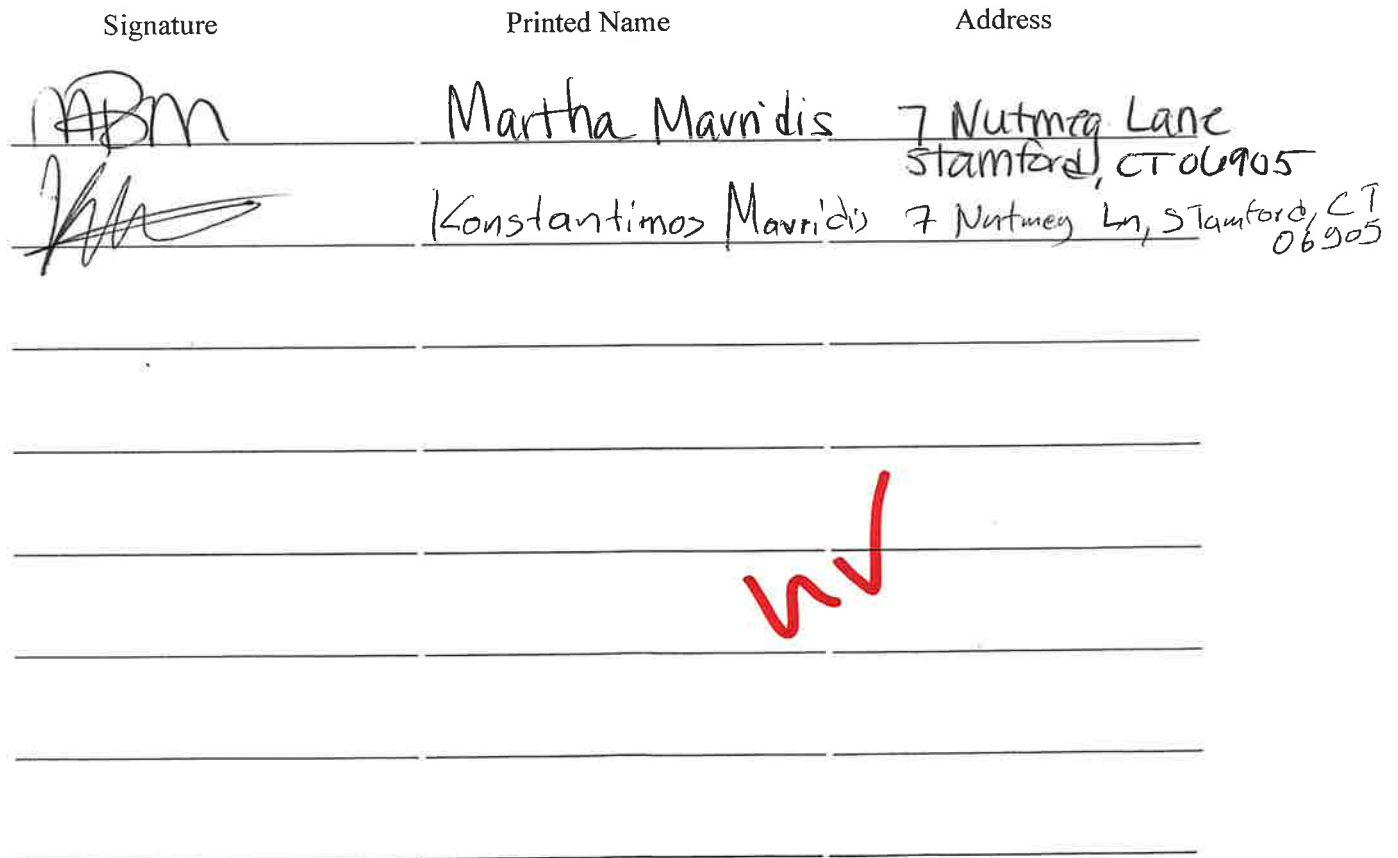 Signature Printed Name Address
MBM Martha Mavridis 7 Nutmeg Lane
Stamford, CT 06905
Konstantimos Mavridis 7 Nutmeg Ln, Stamford, CT
06905